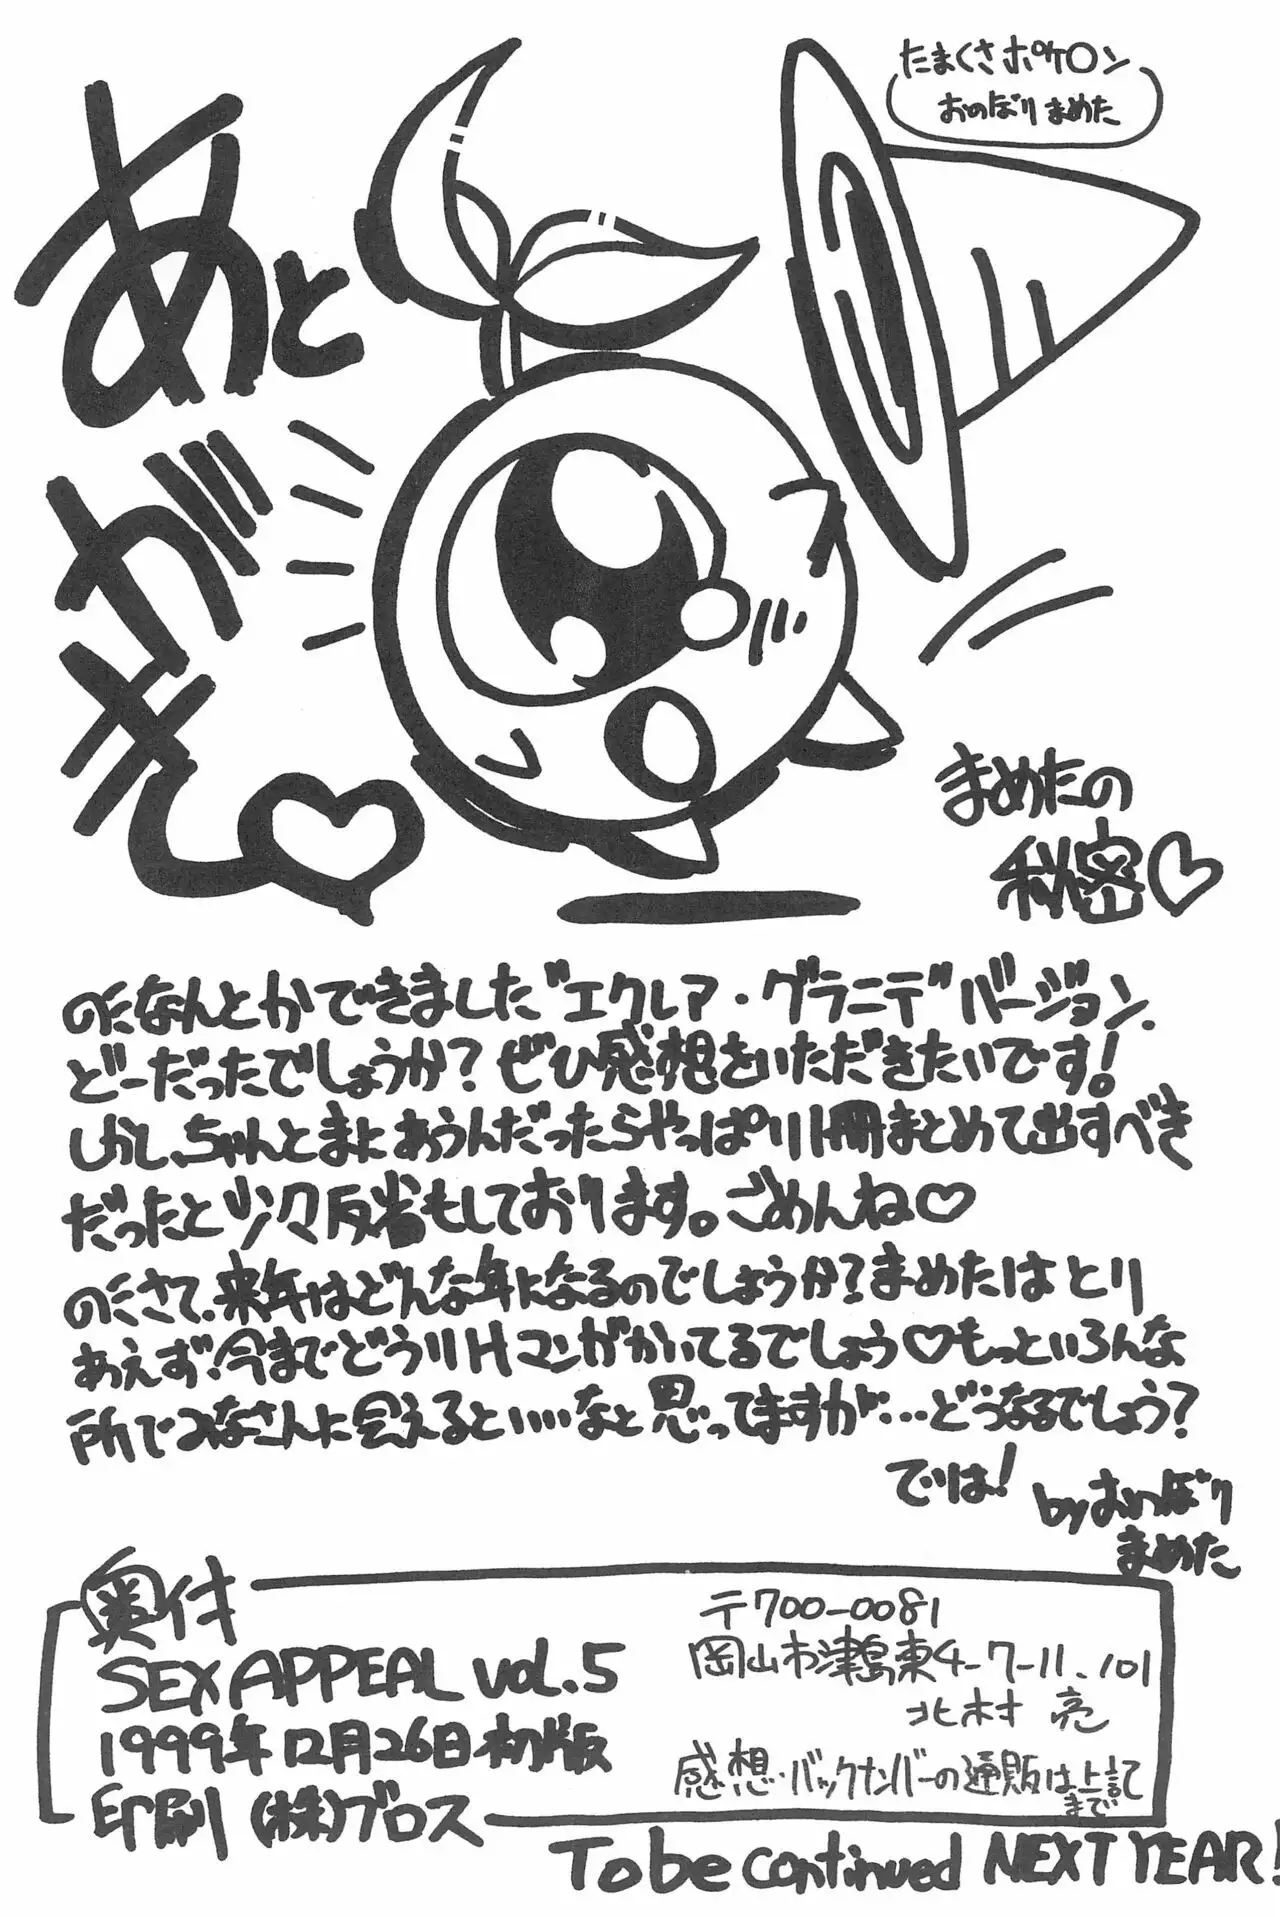 たまくさポケ〇ン
おのぼりまめた
あと
がき
まめたの
秘密♡
のたなんとかできました“エクレア・グラニテ”バージョン.
どーだったでしょうか?ぜひ感想をいただきたいです!
しかし、ちゃんとまにあうんだったらやっぱり1冊まとめて出すべき
だったと少々反省もしております。ごめんね♡
のくさて、来年はどんな年になるのでしょうか?まめたはとり
あえず、今までどうりHマンガかいてるでしょう♡もっといろんな
所でみなさんに会えるといい…なと思ってますが…どうなるでしょう?
では!
byおのぼり
まめた
奥付
SEX APPEAL vol.5
1999年12月26日初版
印刷(株)ブロス
〒700-0081
岡山市津島東4-7-11.101
北村 亮
感想・バックナンバーの通販は上記
まで
To be continued NEXT YEAR!